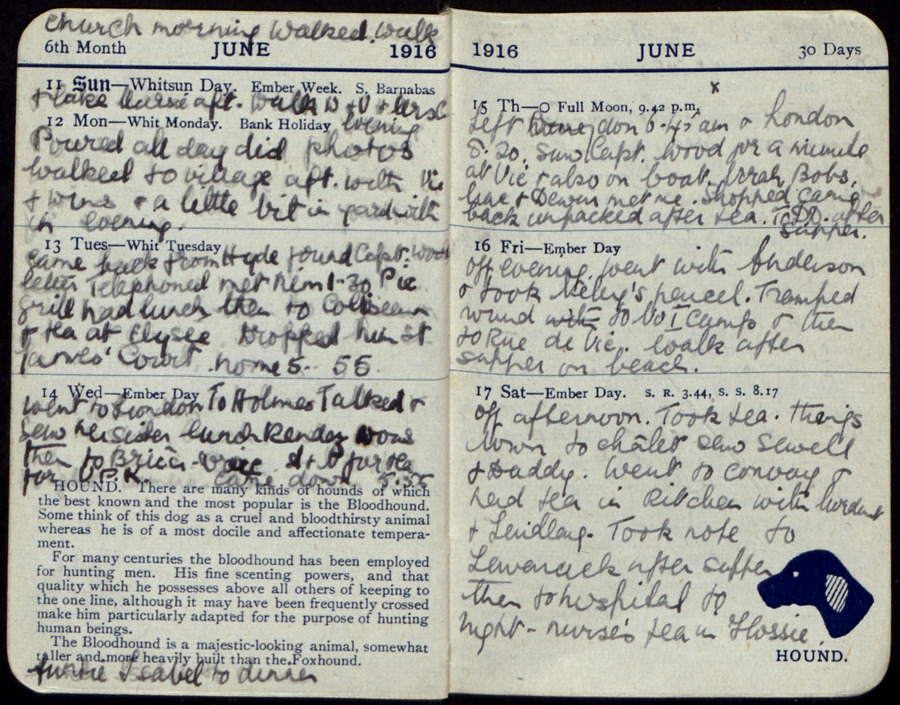 church morning walked. walk
6th Month JUNE 1916
11 Sun—Whitsun Day. Ember Week. S. Barnabas
+ lake aft. walk D + V +
12 Mon—Whit Monday. Bank Holiday evening
Poured all day did photos
walked to village aft. with Vic
+ Wins + a little bit in yard with
in evening.
13 Tues—Whit Tuesday
Came back from Hyde found Capt. Wood
letter Telephoned met him 1-30 Pic
grill had lunch then to Coliseum
+ tea at Elysee Dropped him St
James' Court. home 5- 55.
14 Wed—Ember Day
went to London To Holmes Talked +
saw her sister lunch Rendez vous
then to + for tea
for came down 5.35
HOUND. There are many kinds of hounds of which
the best known and the most popular is the Bloodhound.
Some think of this dog as a cruel and bloodthirsty animal
whereas he is of a most docile and affectionate tempera-
ment.
For many centuries the bloodhound has been employed
for hunting men. His fine scenting powers, and that
quality which he possesses above all others of keeping to
the one line, although it may have been frequently crossed
make him particularly adapted for the purpose of hunting
human beings.
The Bloodhound is a majestic-looking animal, somewhat
taller and more heavily built than the Foxhound.
Auntie Isabel to dinner
1916 JUNE 30 Days
x
15 Th—O Full Moon, 9.42 p.m.
Left 6.45 am London
8.20. Saw Capt. Wood for a minute
at Vic + also on boat. Bobs,
+ met me. Shopped came
back unpacked after tea. T.D.D. after
supper.
16 Fri—Ember Day
Off evening. went with Anderson
+ took pencil. Tramped
round with to No I Camp + then
to Rue de Vic. walk after
supper on beach.
17 Sat—Ember Day. S. R. 3.44, S. S. 8.17
Off afternoon. Took tea. things
down to châlet saw Sewell
+ Daddy. Went to convoy +
had tea in Kitchen with
+ Laidlay. Took note to
after supper
then to hospital to
night - nurse's tea in 'Flossie'.
HOUND.